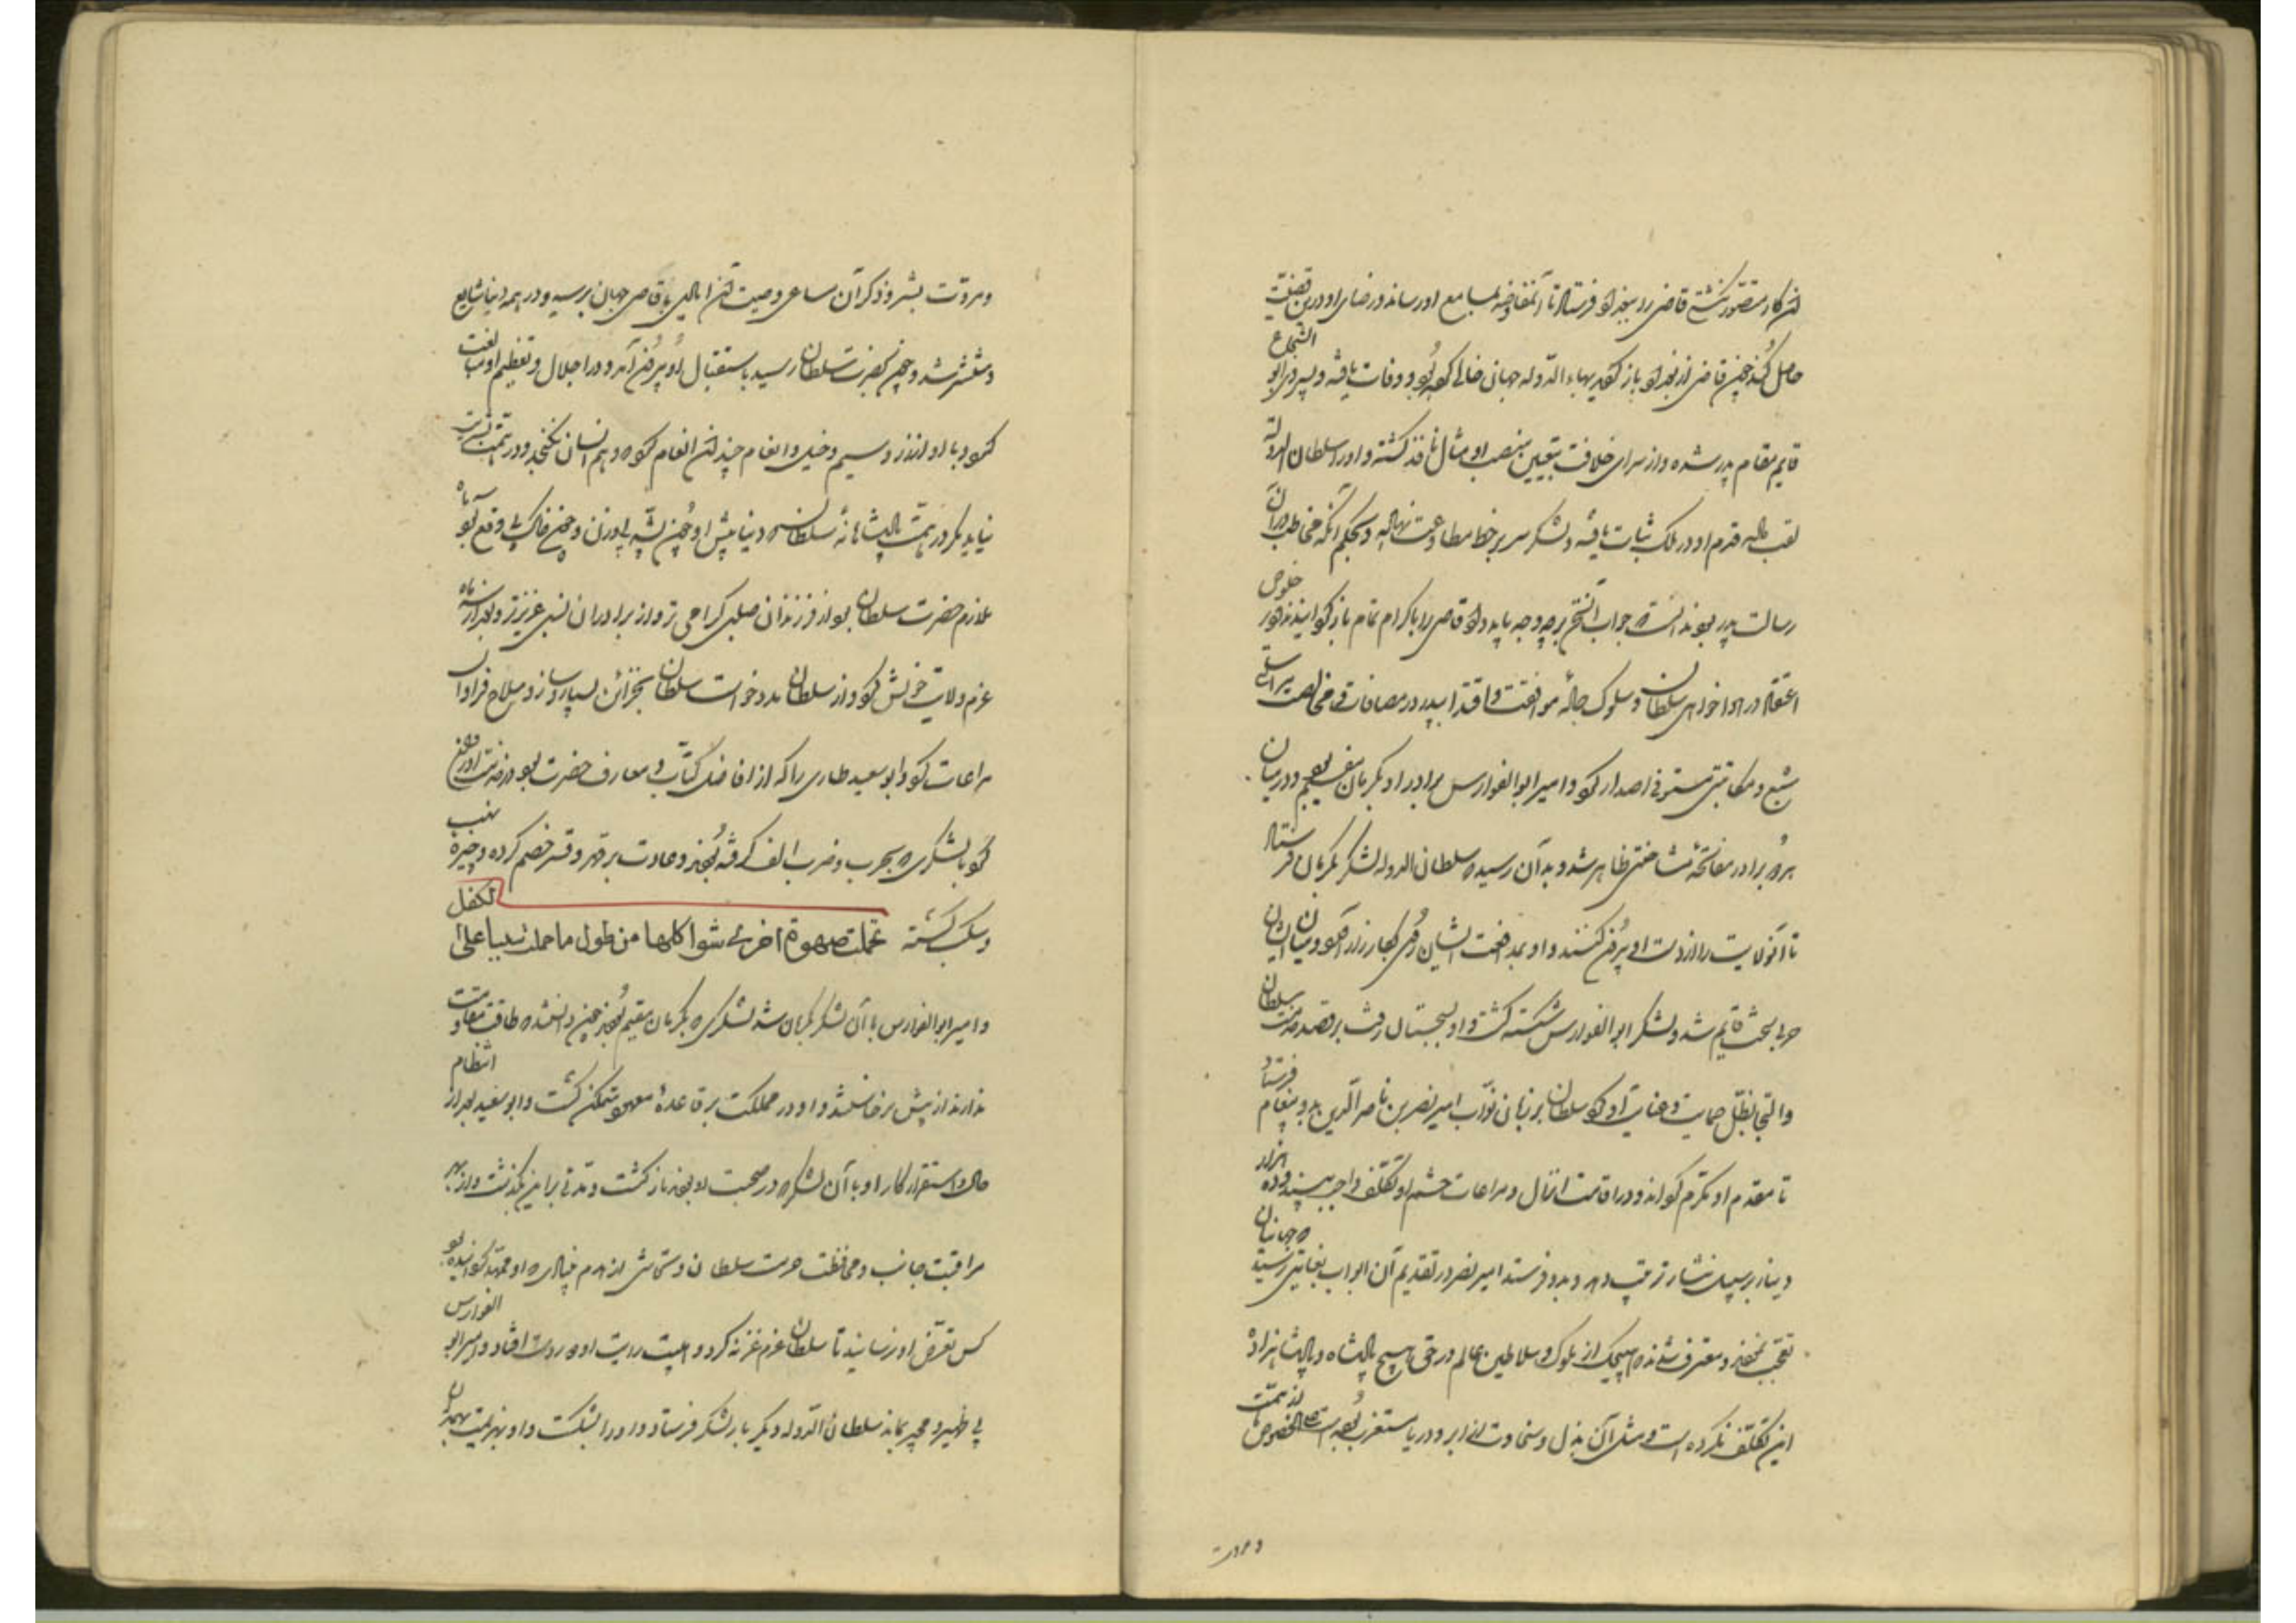 این کار متصور نگشتی قاضی را ببغداد فرستاد تا آن مفاوضه بمسامع او رساند و رضای او درین قضیت
حاصل کند چون قاضی از بغداد باز گردید بهاء الدوله جهان خالی کرده بود و وفات یافته و پسر وی ابو الشجاع
قایم مقام پدر شده و از سرای خلافت بتعیین منصب او مثال نافذ گشته و او را سلطان الدوله
لقب داده قدم او در ملک ثبات یافته و لشکر سر بر خط مطاوعت نهاده و بحکم آنکه مخاطب در آن
رسالت پدر بود ندانست جواب آن سخن بر چه وجه باید داد قاضی را باکرام تمام باز گردانید و از خلوص
اعتقاد در هواخواهی سلطان و سلوک جاده موافقت و اقتدا بپدر در مصافات و مخالصت براستی
مشبع و مکاتبتی مستوفی اصدار کرد و امیر ابو الفوارس برادر او بکرمان مقیم بود و در میان
هر دو برادر مفاتحه مشاحنتی ظاهر شد و بدان رسید که سلطان الدوله لشکر بکرمان فرستاد
تا آن ولایت را از دست او بیرون کنند و او بمدافعت ایشان روی بکارزار آورد و میان ایشان
حربی سخت قایم شد و لشکر ابو الفوارس شکسته گشت و او بسجستان رفت بر قصد خدمت سلطان
و التجا بظل حمایت و عنایت او کرد سلطان بر زبان نواب امیر نصر بن ناصر الدین بدو پیغام فرستاد
تا مقدم او مکرم گرداند و در اقامت انزال و مراعات حشم او تکلف واجب بیند و ده هزار
دینار بر سبیل نثار ترتیب دهد و بدو فرستد امیر نصر در تقدیم آن ابواب بغایتی رسید که جهانیان
تعجب نمودند و معترف شدند که هیچیک از ملوک و سلاطین عالم در حق هیچ پادشاه و پادشاهزاده
این تکلف نکرده است و مثل آن بذل و سخاوت از ابر و دریا مستغرب بوده است علی الخصوص از همت
و مروت
و مروت بشر و ذکر آن مساعی وصیت آن ایادی باقاصی جهان برسید و در همه دنیا شایع
و منتشر شد و چون بحضرت سلطان رسید باستقبال او بیرون آمد و در اجلال و تعظیم او مبالغت
نمود و با او از زر و سیم و خیل و انعام چندان انعام کرد که در وهم انسان نگنجد و در همت بشریت
نیاید مگر در همت پادشاهانه سلطان که دنیا پیش او چون پشه بی وزن و چون خاک بی وقع بود سه ماه
ملازم حضرت سلطان بود از فرزندان صلبی گرامی تر و از برادران نسبی عزیزتر و بعد از سه ماه
عزم ولایت خویش کرد و از سلطان مدد خواست سلطان بخزائن بسیار و ساز و سلاح فراوان
مراعات کرد و ابو سعید طائی را که از افاضل کتاب و معارف حضرت بود در خدمت او روان
کرد با لشکری که بحرب و ضرب الف گرفته بودند و عادت بر قهر و قسر خصم کرده و چیره بنهب
و سبک گشته تحملت صهوة اخری شواکلها من طول ما حملت سبیا علی الکفل
و امیر ابو الفوارس با آن لشکر بکرمان شد لشکری که بکرمان مقیم بودند چون دانستند که طاقت مقاومت
ندارند از پیش برخاستند و او در مملکت بر قاعده معهود متمکن گشت و ابو سعید بعد از انتظام
حال و استقرار کار او با آن لشکر که در صحبت او بودند باز گشت و مدتی بر این بگذشت و از بهر
مراقبت جانب و محافظت حرمت سلطان و تحاشی از هدم خیالی که او ممهد گردانیده بود
کس تعرض او نرسانید تا سلطان عزم غزنه کرد و و امیر ابو الفوارس
بی ظهیر و مجیر بماند سلطان الدوله دیگر بار لشکر فرستاد و او را بشکست و او بهزیمت بهمدان